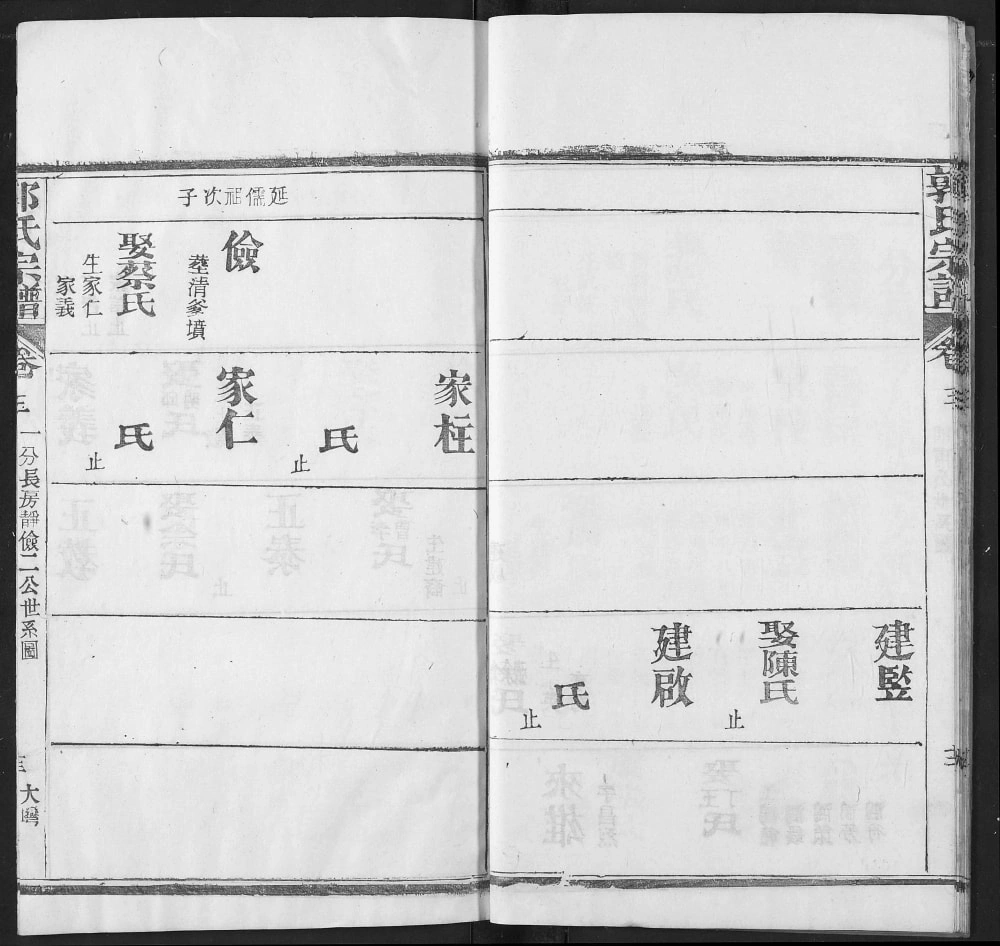 郭氏宗譜
卷
三
建監
娶陳氏
止
建啟
氏
止
延儒祖次子
儉
塟清爹墳
娶蔡氏
生家仁
家義
家柱
氏
止
家仁
氏
止
郭氏宗譜
卷
三
一分長房靜儉二公世系圖
三